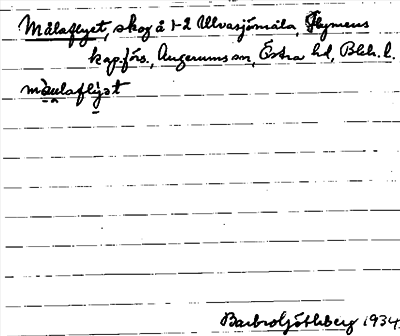 Målaflyet, skog å 1-2 Ulvasjömåla, Flymens
kap.förs., Augerums sn, Östra hd, Blek. l.
måulaflyet
Barbro Götlberg 1934.